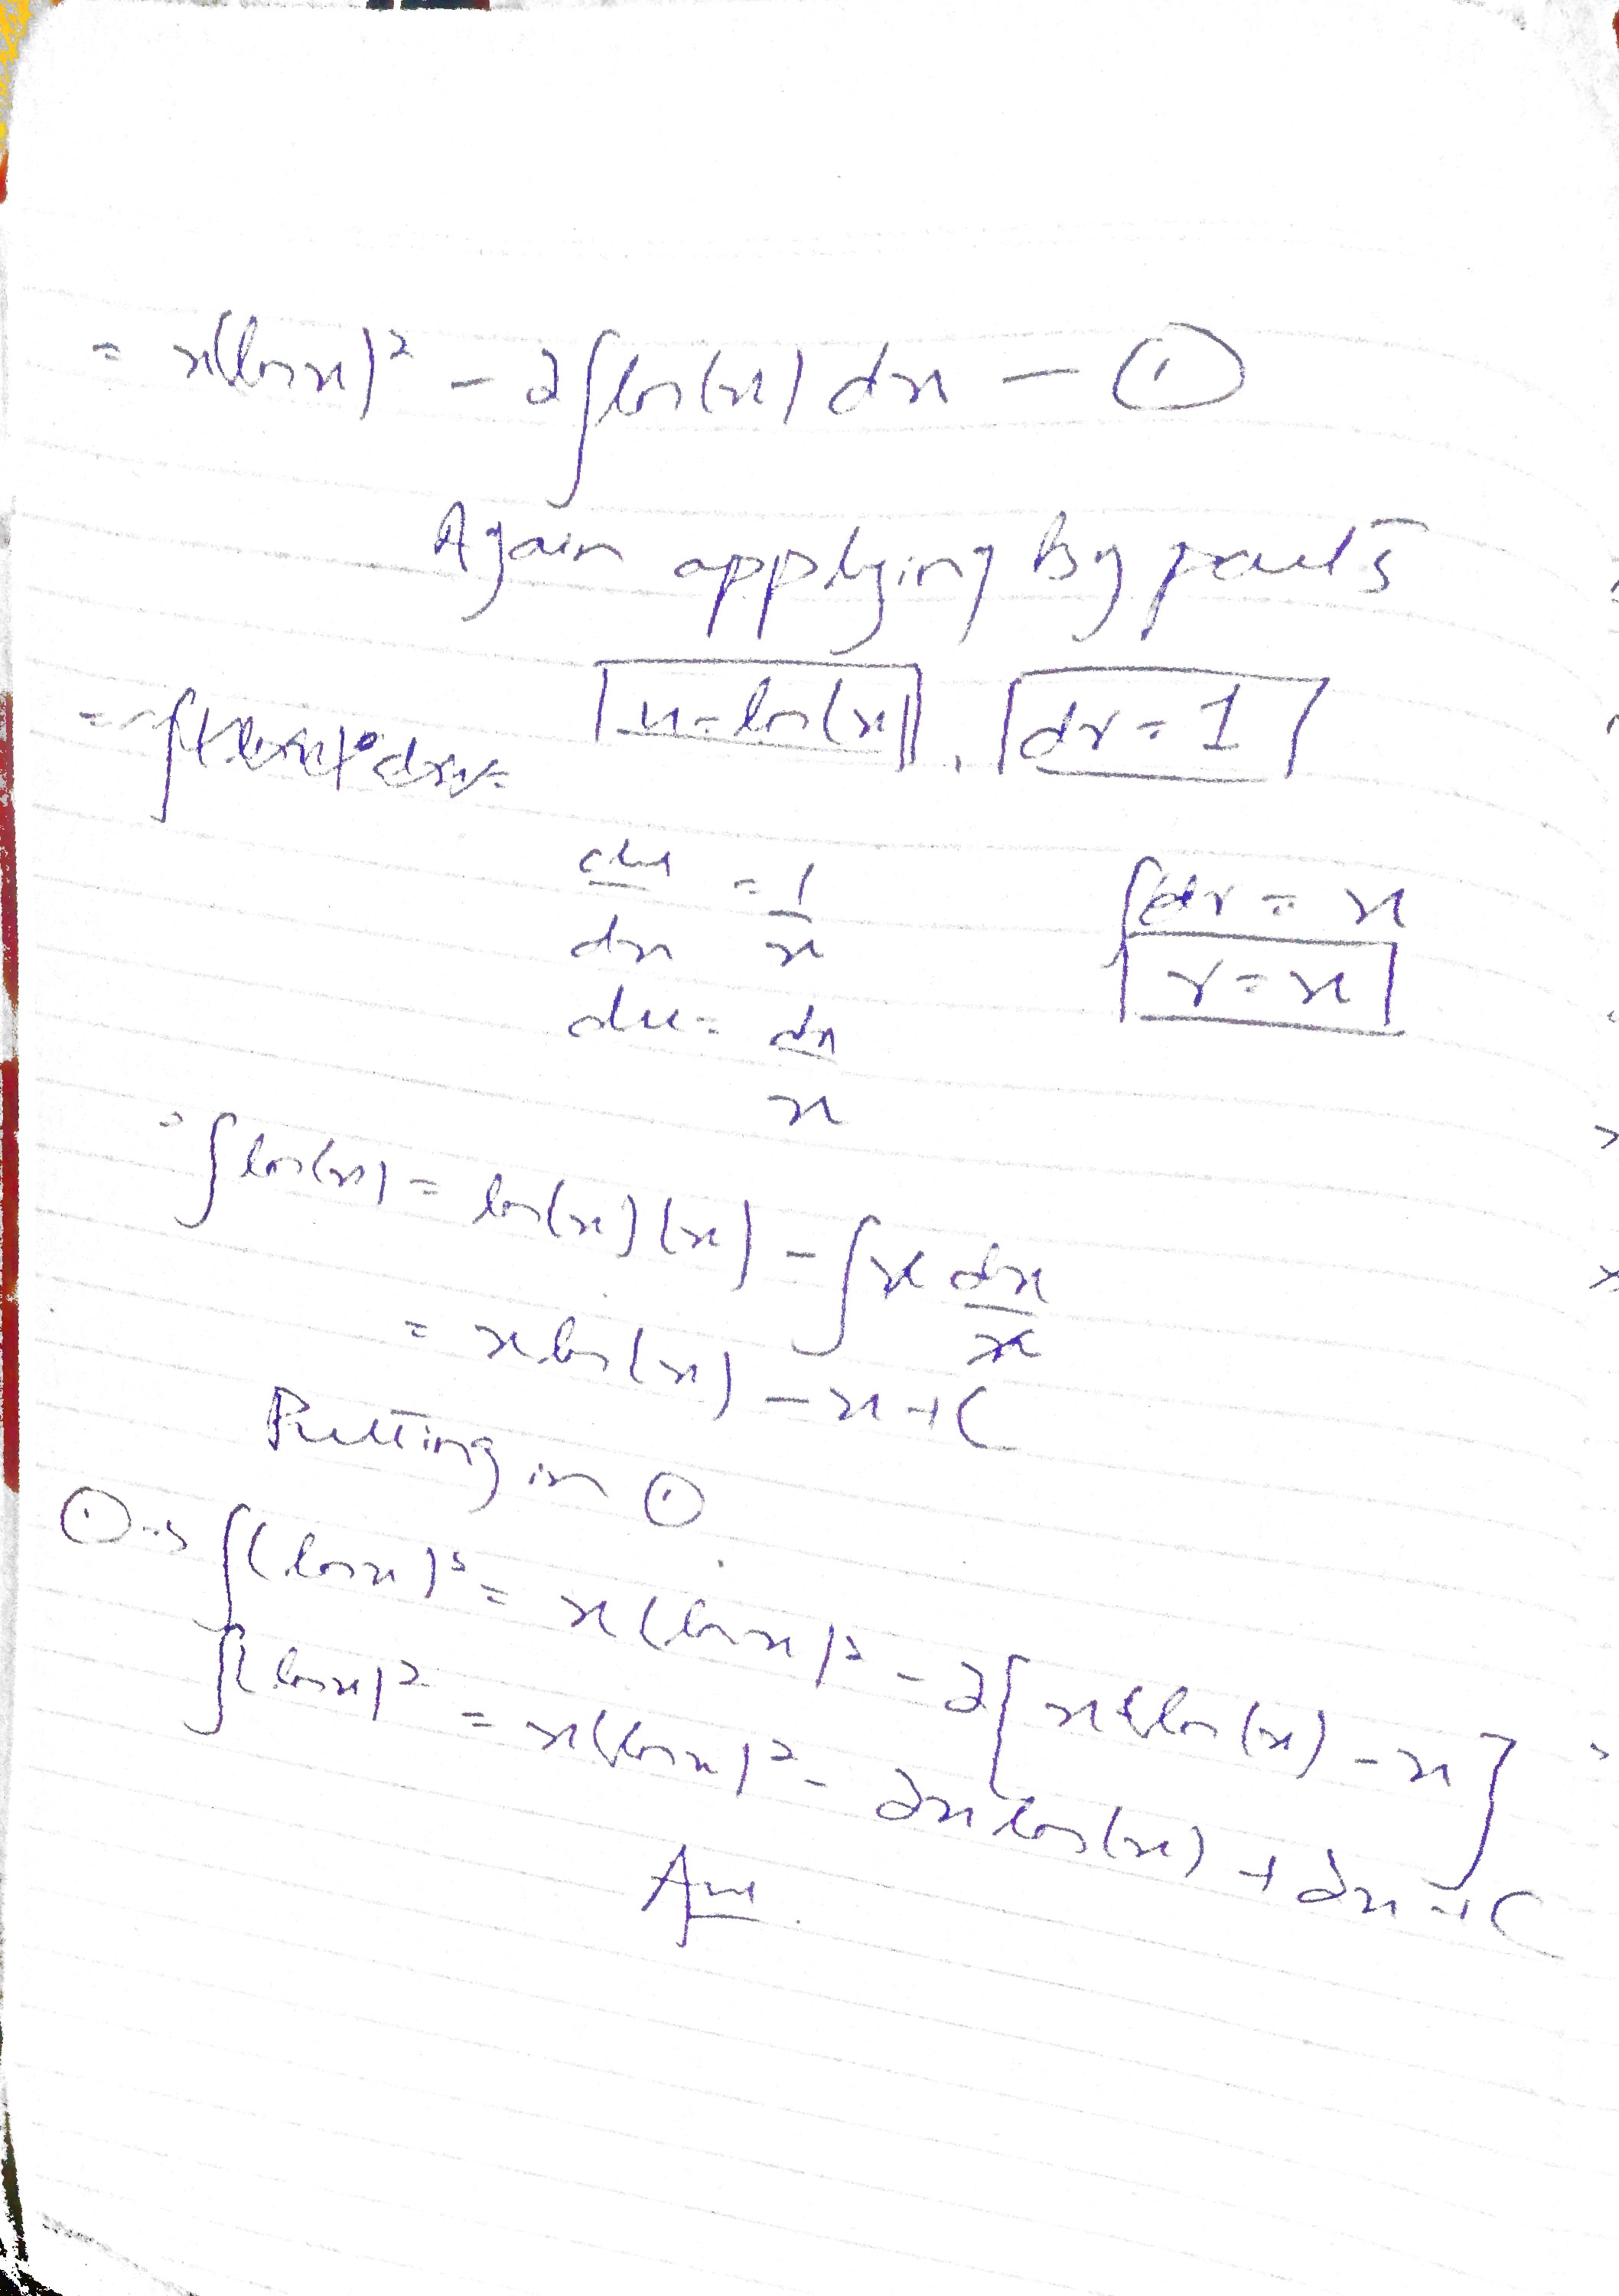 = x(lnx)² - 2∫ln(x) dx — ①
Again applying By parts
u=ln(x) , dv=1
du/dx = 1/x ∫dv = x
du = dx/x v=x
= ∫ln(x) = ln(x)(x) - ∫x dx/x
= xln(x) - x+C
Putting in ①
①→ ∫(lnx)² = x(lnx)² - 2[xln(x) - x]
∫(lnx)² = x(lnx)² - 2xln(x) + 2x+C
Ans.